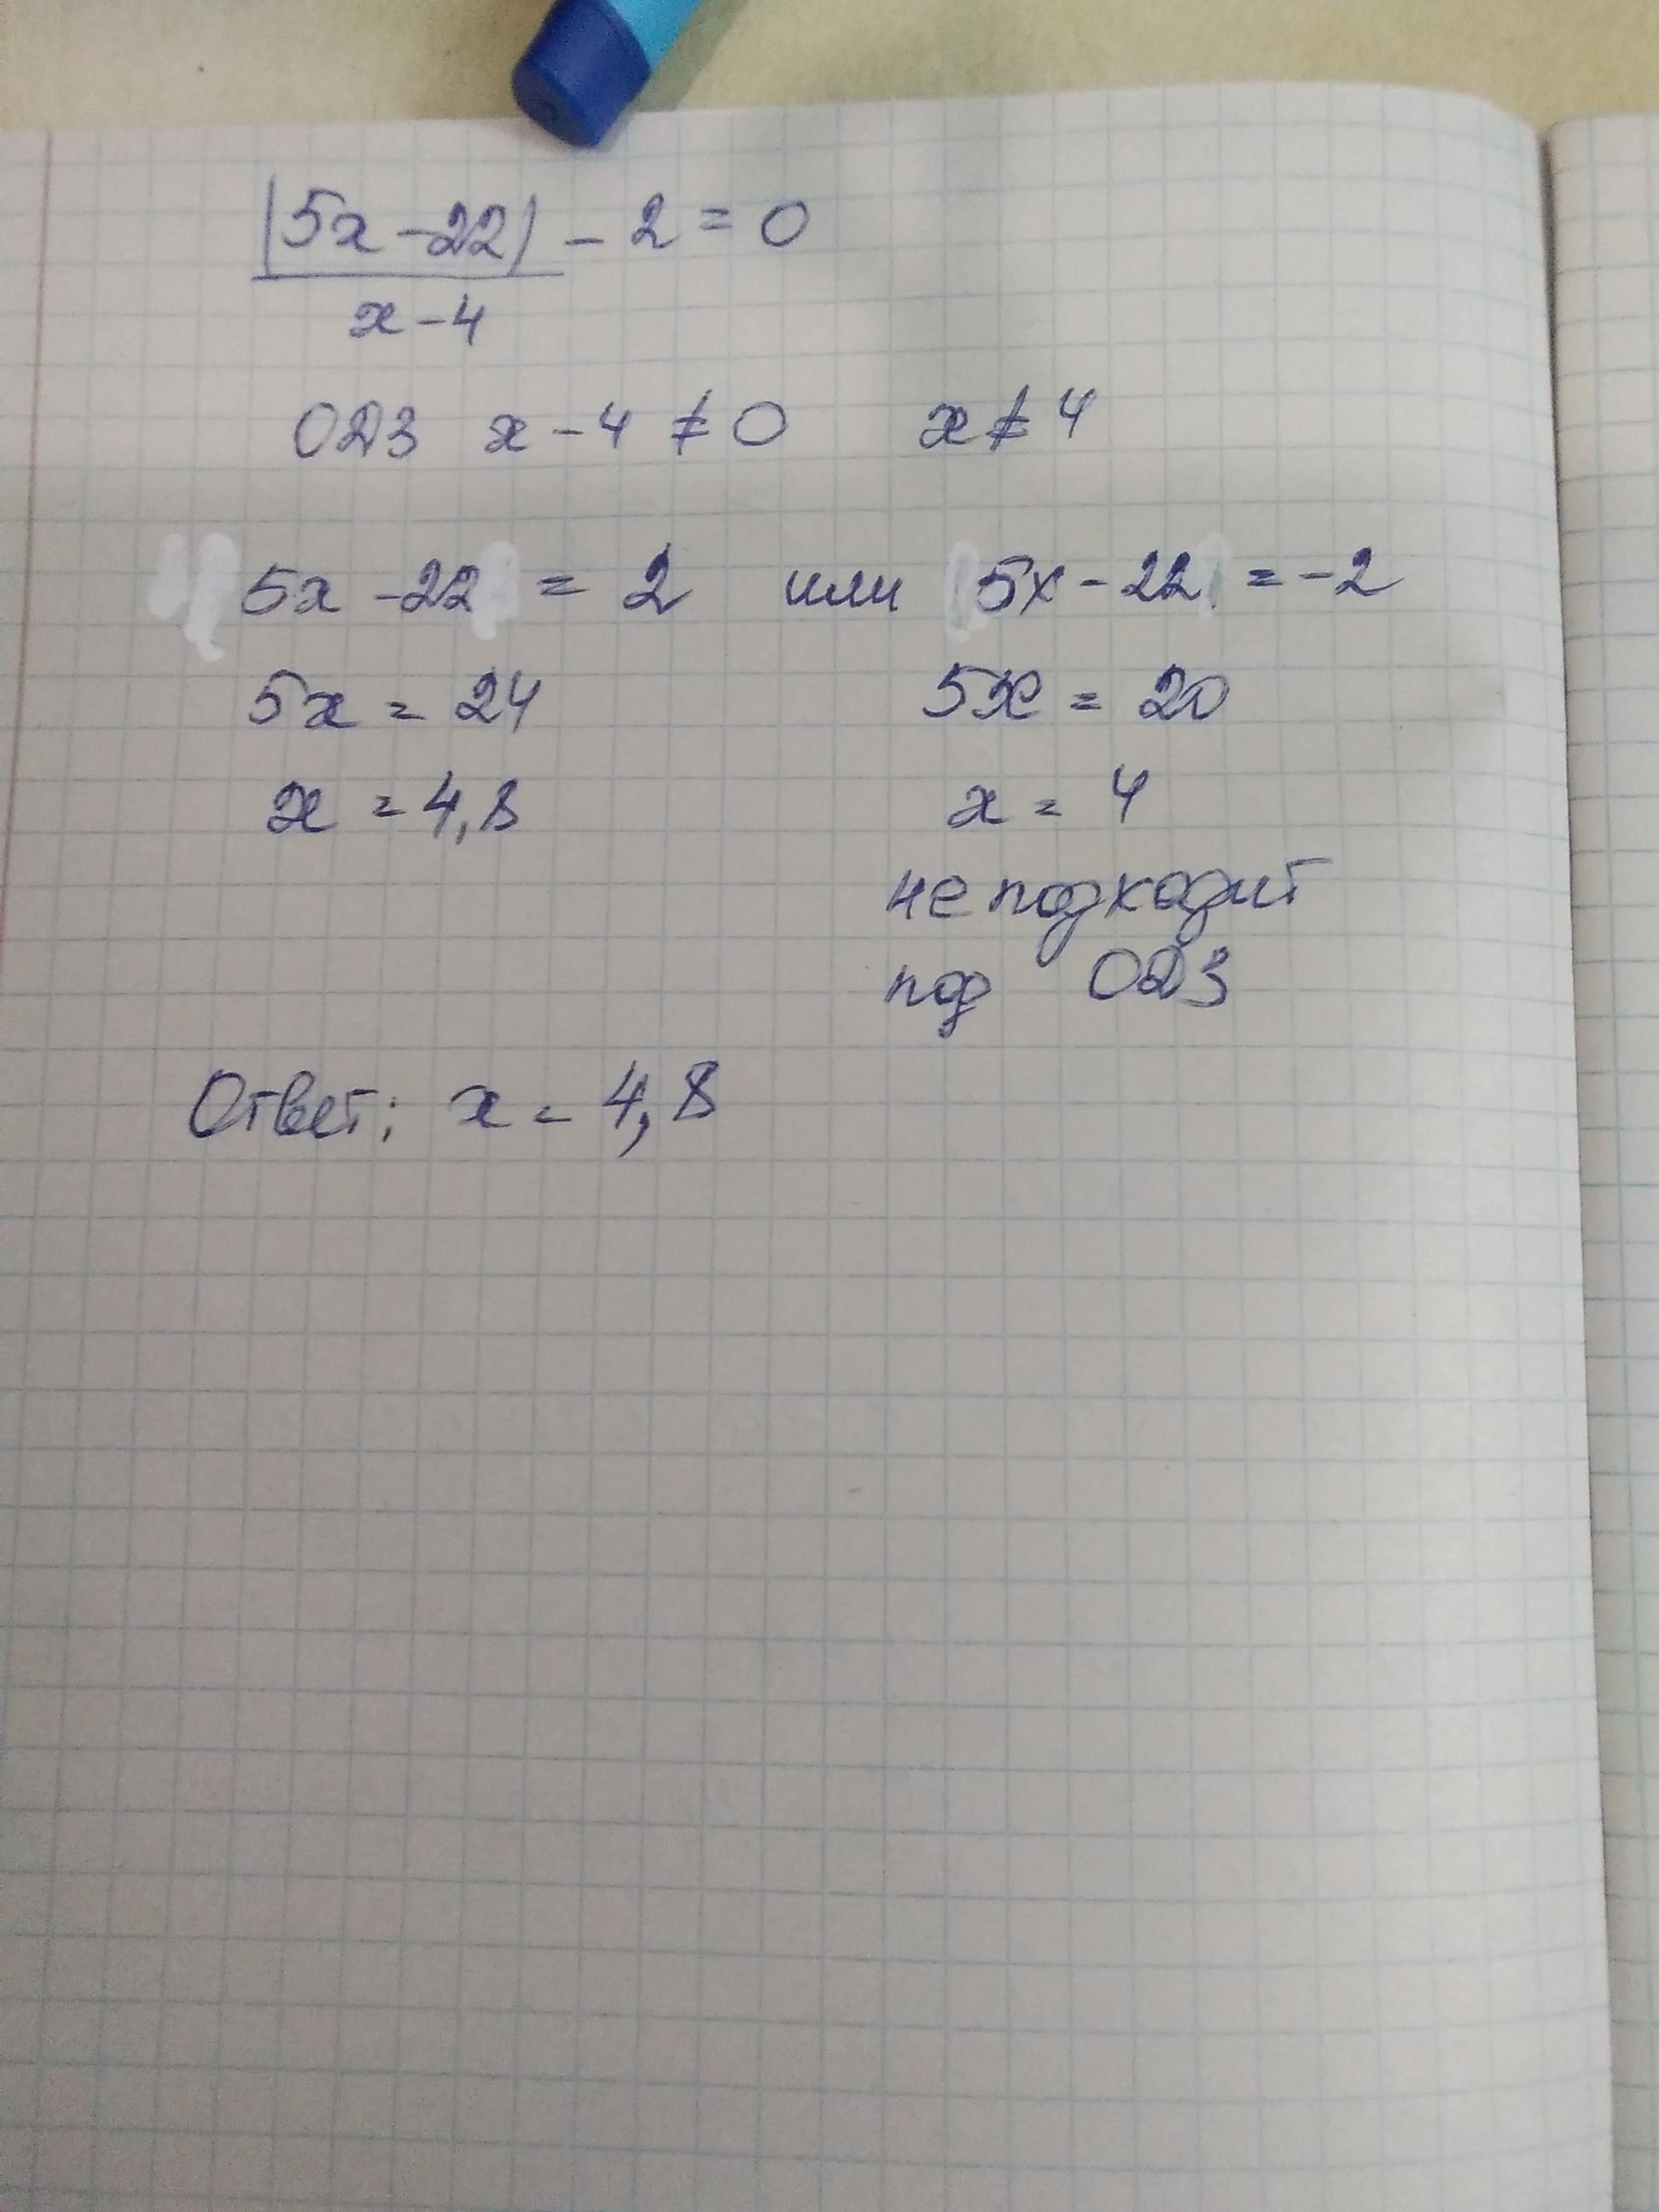 |5x - 22| - 2 = 0
x - 4
ОДЗ x - 4 ≠ 0 x ≠ 4
5x - 22 = 2 или 5x - 22 = -2
5x = 24 5x = 20
x = 4,8 x = 4
не подходит
под ОДЗ
Ответ: x = 4,8